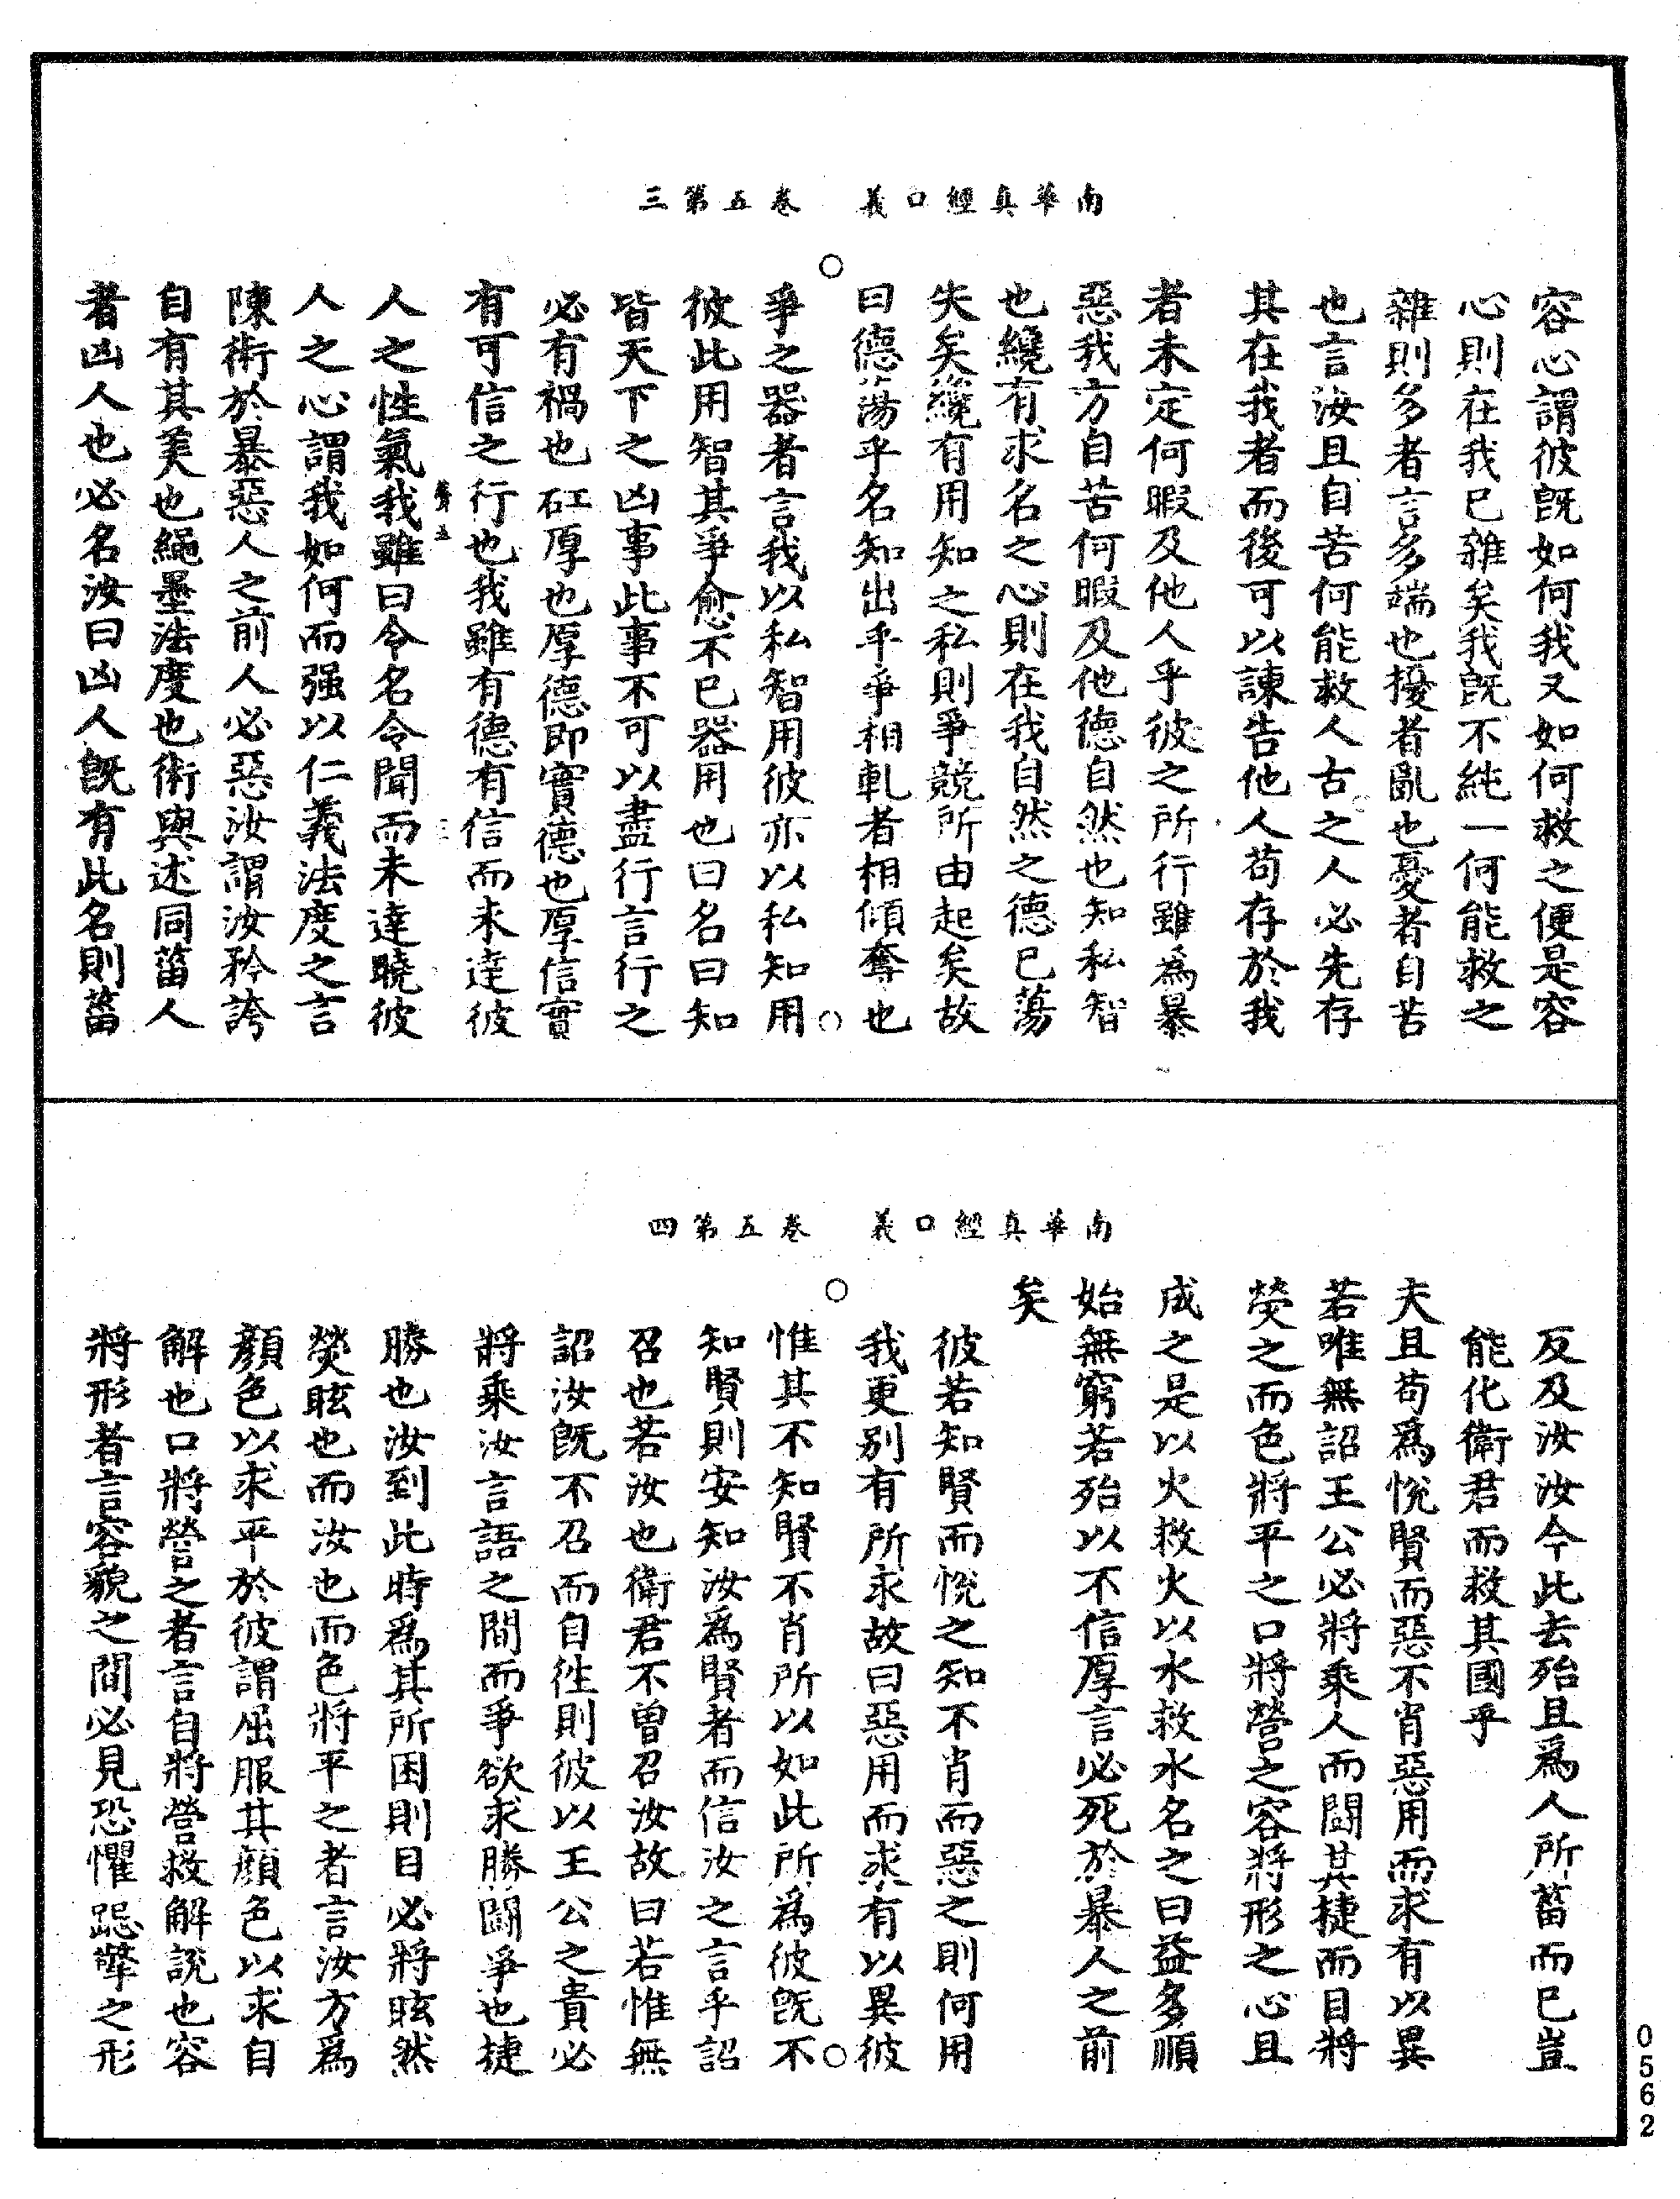 南華真經口義　卷五第三
容心謂彼旣如何我又如何救之便是容
心則在我已雜矣我旣不純一何能救之
雜則多者言多端也擾者亂也憂者自苦
也言汝且自苦何能救人古之人必先存
其在我者而後可以諫告他人苟存於我
者未定何暇及他人乎彼之所行雖爲暴
惡我方自苦何暇及他德自然也知私智
也纔有求名之心則在我自然之德已蕩
失矣纔有用知之私則爭競所由起矣故
曰德蕩乎名知出乎爭相軋者相傾奪也
爭之器者言我以私智用彼亦以私知用
彼此用智其爭愈不已器用也曰名曰知
皆天下之凶事此事不可以盡行言行之
必有禍也矼厚也厚德即實德也厚信實
有可信之行也我雖有德有信而未達彼
人之性氣我雖曰令名令聞而未達曉彼
人之心謂我如何而强以仁義法度之言
陳術於暴惡人之前人必惡汝謂汝矜誇
自有其美也繩墨法度也術與述同菑人
者凶人也必名汝曰凶人旣有此名則菑
南華真經口義　卷五第四
反及汝汝今此去殆且爲人所菑而已豈
能化衛君而救其國乎
夫且苟爲悅賢而惡不肖惡用而求有以異
若唯無詔王公必將乘人而鬬其捷而目將
熒之而色將平之口將營之容將形之心且
成之是以火救火以水救水名之曰益多順
始無窮若殆以不信厚言必死於暴人之前
矣
彼若知賢而悅之知不肖而惡之則何用
我更别有所求故曰惡用而求有以異彼
惟其不知賢不肖所以如此所爲彼旣不
知賢則安知汝爲賢者而信汝之言乎詔
召也若汝也衛君不曾召汝故曰若惟無
詔汝旣不召而自往則彼以王公之貴必
將乘汝言語之間而爭欲求勝鬬爭也捷
勝也汝到此時爲其所困則目必將眩然
熒眩也而汝也而色將平之者言汝方爲
顏色以求平於彼謂屈服其顏色以求自
解也口將營之者言自將營救解說也容
將形者言容貌之間必見恐懼跽擎之形
0562